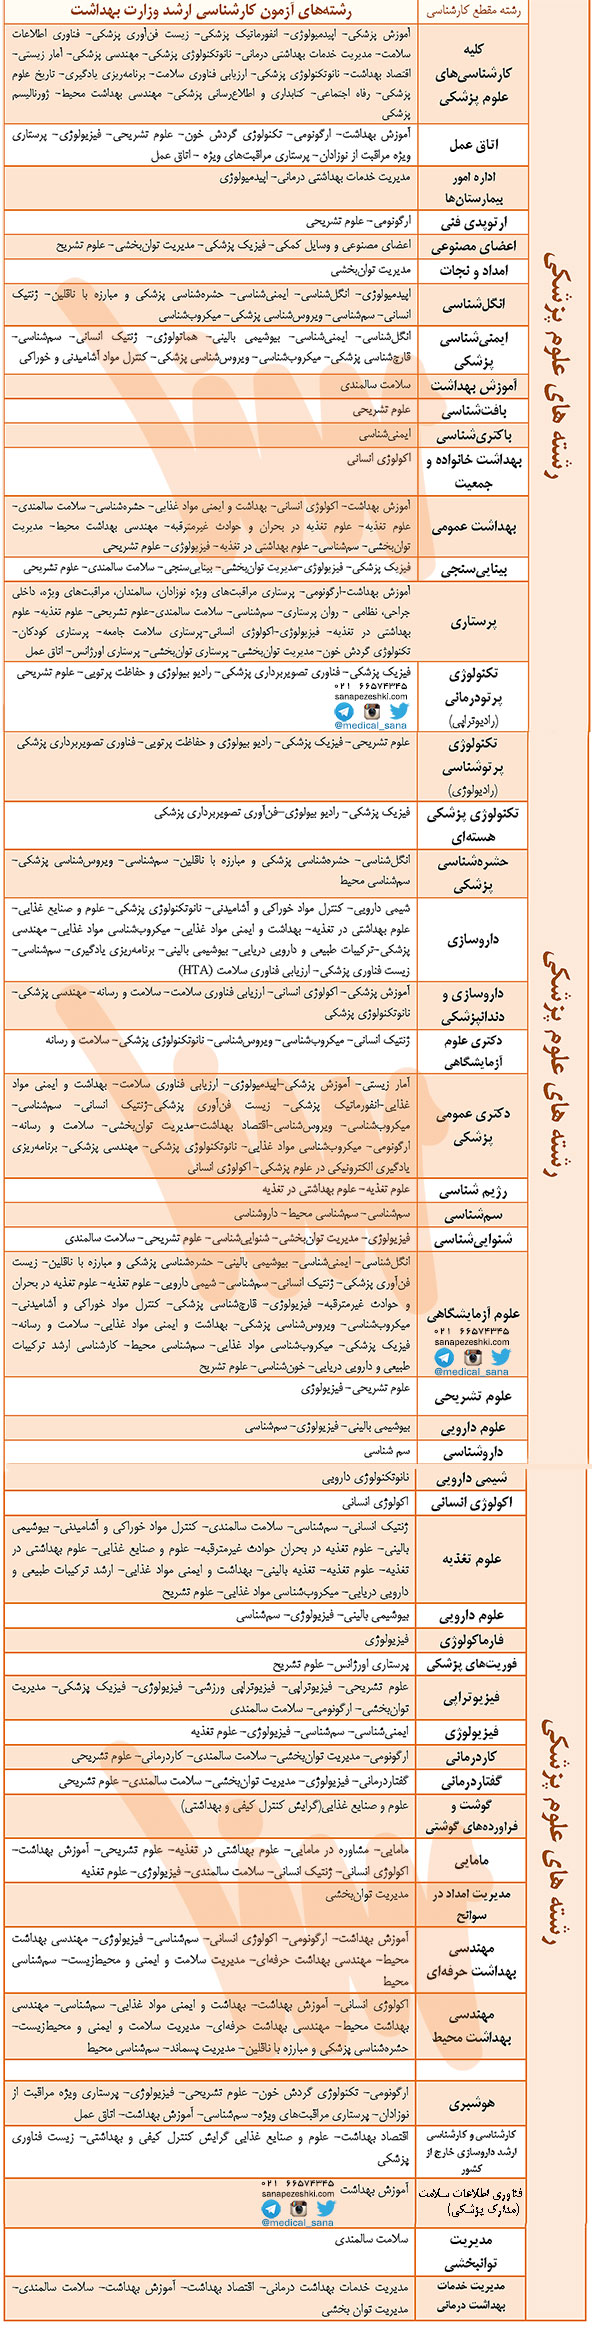 رشته مقطع کارشناسی
رشته‌های آزمون کارشناسی ارشد وزارت بهداشت
رشته های علوم پزشکی
کلیه
کارشناسی‌های
علوم پزشکی
آموزش پزشکی- اپیدمیولوژی- انفورماتیک پزشکی- زیست فن‌آوری پزشکی- فناوری اطلاعات
سلامت- مدیریت خدمات بهداشتی درمانی- نانوتکنولوژی پزشکی- مهندسی پزشکی- آمار زیستی-
اقتصاد بهداشت- نانوتکنولوژی پزشکی- ارزیابی فناوری سلامت- برنامه‌ریزی یادگیری- تاریخ علوم
پزشکی- رفاه اجتماعی- کتابداری و اطلاع‌رسانی پزشکی- مهندسی بهداشت محیط- ژورنالیسم
پزشکی
اتاق عمل
آموزش بهداشت- ارگونومی- تکنولوژی گردش خون- علوم تشریحی- فیزیولوژی- پرستاری
ویژه مراقبت از نوزادان- پرستاری مراقبت‌های ویژه - اتاق عمل
اداره امور
بیمارستان‌ها
مدیریت خدمات بهداشتی درمانی- اپیدمیولوژی
ارتوپدی فنی
ارگونومی- علوم تشریحی
اعضای مصنوعی
اعضای مصنوعی و وسایل کمکی- فیزیک پزشکی- مدیریت توان‌بخشی- علوم تشریح
امداد و نجات
مدیریت توان‌بخشی
انگل‌شناسی
اپیدمیولوژی- انگل‌شناسی- ایمنی‌شناسی- حشره‌شناسی پزشکی و مبارزه با ناقلین- ژنتیک
انسانی- سم‌شناسی- ویروس‌شناسی پزشکی- میکروب‌شناسی
ایمنی‌شناسی
پزشکی
انگل‌شناسی- ایمنی‌شناسی- بیوشیمی بالینی- هماتولوژی- ژنتیک انسانی- سم‌شناسی-
قارچ‌شناسی پزشکی- میکروب‌شناسی- ویروس‌شناسی پزشکی- کنترل مواد آشامیدنی و خوراکی
آموزش بهداشت
سلامت سالمندی
بافت‌شناسی
علوم تشریحی
باکتری‌شناسی
ایمنی‌شناسی
بهداشت خانواده و
جمعیت
اکولوژی انسانی
بهداشت عمومی
آموزش بهداشت- اکولوژی انسانی- بهداشت و ایمنی مواد غذایی- حشره‌شناسی- سلامت سالمندی-
علوم تغذیه- علوم تغذیه در بحران و حوادث غیرمترقبه- مهندسی بهداشت محیط- مدیریت
توان‌بخشی- سم‌شناسی- علوم بهداشتی در تغذیه- فیزیولوژی- علوم تشریحی
بینایی‌سنجی
فیزیک پزشکی- فیزیولوژی-مدیریت توان‌بخشی- بینایی‌سنجی- سلامت سالمندی- علوم تشریحی
پرستاری
آموزش بهداشت-ارگونومی- پرستاری مراقبت‌های ویژه نوزادان، سالمندان، مراقبت‌های ویژه، داخلی
جراحی، نظامی - روان پرستاری- سم‌شناسی- سلامت سالمندی-علوم تشریحی- علوم تغذیه- علوم
بهداشتی در تغذیه- فیزیولوژی-اکولوژی انسانی-پرستاری سلامت جامعه- پرستاری کودکان-
تکنولوژی گردش خون- مدیریت توان‌بخشی- پرستاری توان‌بخشی- پرستاری اورژانس- اتاق عمل
تکنولوژی
پرتودرمانی
(رادیوتراپی)
فیزیک پزشکی- فناوری تصویربرداری پزشکی- رادیو بیولوژی و حفاظت پرتویی- علوم تشریحی
۰۲۱ ۶۶۵۷۴۳۴۵
sanapezeshki.com
@medical_sana
رشته های علوم پزشکی
تکنولوژی
پرتوشناسی
(رادیولوژی)
علوم تشریحی- فیزیک پزشکی- رادیو بیولوژی و حفاظت پرتویی-فناوری تصویربرداری پزشکی
تکنولوژی پزشکی
هسته‌ای
فیزیک پزشکی- رادیو بیولوژی-فن‌آوری تصویربرداری پزشکی
حشره‌شناسی
پزشکی
انگل‌شناسی- حشره‌شناسی پزشکی و مبارزه با ناقلین- سم‌شناسی- ویروس‌شناسی پزشکی-
سم‌شناسی محیط
داروسازی
شیمی دارویی- کنترل مواد خوراکی و آشامیدنی- نانوتکنولوژی پزشکی- علوم و صنایع غذایی-
علوم بهداشتی در تغذیه- بهداشت و ایمنی مواد غذایی- میکروب‌شناسی مواد غذایی- مهندسی
پزشکی-ترکیبات طبیعی و دارویی دریایی- بیوشیمی بالینی- برنامه‌ریزی یادگیری- سم‌شناسی-
زیست فناوری پزشکی- ارزیابی فناوری سلامت (HTA)
داروسازی و
دندانپزشکی
آموزش پزشکی- اکولوژی انسانی- ارزیابی فناوری سلامت- سلامت و رسانه- مهندسی پزشکی-
نانوتکنولوژی پزشکی
دکتری علوم
آزمایشگاهی
ژنتیک انسانی- میکروب‌شناسی- ویروس‌شناسی- نانوتکنولوژی پزشکی- سلامت و رسانه
دکتری عمومی
پزشکی
آمار زیستی- آموزش پزشکی-اپیدمیولوژی- ارزیابی فناوری سلامت- بهداشت و ایمنی مواد
غذایی-انفورماتیک پزشکی- زیست فن‌آوری پزشکی-ژنتیک انسانی- سم‌شناسی-
میکروب‌شناسی- ویروس‌شناسی-اقتصاد بهداشت-مدیریت توان‌بخشی- سلامت و رسانه-
ارگونومی- میکروب‌شناسی مواد غذایی- نانوتکنولوژی پزشکی- مهندسی پزشکی- برنامه‌ریزی
یادگیری الکترونیکی در علوم پزشکی- اکولوژی انسانی
رژیم شناسی
علوم تغذیه- علوم بهداشتی در تغذیه
سم‌شناسی
سم‌شناسی- سم‌شناسی محیط- داروشناسی
شنوایی‌شناسی
فیزیولوژی- مدیریت توان‌بخشی- شنوایی‌شناسی- علوم تشریحی- سلامت سالمندی
علوم آزمایشگاهی
۰۲۱ ۶۶۵۷۴۳۴۵
sanapezeshki.com
@medical_sana
انگل‌شناسی- ایمنی‌شناسی- بیوشیمی بالینی- حشره‌شناسی پزشکی و مبارزه با ناقلین- زیست
فن‌آوری پزشکی- ژنتیک انسانی- سم‌شناسی- شیمی دارویی- علوم تغذیه- علوم تغذیه در بحران
و حوادث غیرمترقبه- فیزیولوژی- قارچ‌شناسی پزشکی- کنترل مواد خوراکی و آشامیدنی-
میکروب‌شناسی- ویروس‌شناسی پزشکی- بهداشت و ایمنی مواد غذایی- سلامت و رسانه-
فیزیک پزشکی- میکروب‌شناسی مواد غذایی- سم‌شناسی محیط- کارشناسی ارشد ترکیبات
طبیعی و دارویی دریایی- خون‌شناسی- علوم تشریح
علوم تشریحی
علوم تشریحی- فیزیولوژی
علوم دارویی
بیوشیمی بالینی- فیزیولوژی- سم‌شناسی
داروشناسی
سم شناسی
رشته های علوم پزشکی
شیمی دارویی
نانوتکنولوژی دارویی
اکولوژی انسانی
اکولوژی انسانی
علوم تغذیه
ژنتیک انسانی- سم‌شناسی- سلامت سالمندی- کنترل مواد خوراکی و آشامیدنی- بیوشیمی
بالینی- علوم تغذیه در بحران حوادث غیرمترقبه- علوم و صنایع غذایی- علوم بهداشتی در
تغذیه- علوم تغذیه- تغذیه بالینی- بهداشت و ایمنی مواد غذایی- ارشد ترکیبات طبیعی و
دارویی دریایی- میکروب‌شناسی مواد غذایی- علوم تشریح
علوم دارویی
بیوشیمی بالینی- فیزیولوژی- سم‌شناسی
فارماکولوژی
فیزیولوژی
فوریت‌های پزشکی
پرستاری اورژانس- علوم تشریح
فیزیوتراپی
علوم تشریحی- فیزیوتراپی- فیزیوتراپی ورزشی- فیزیولوژی- فیزیک پزشکی- مدیریت
توان‌بخشی- ارگونومی- سلامت سالمندی
فیزیولوژی
ایمنی‌شناسی- سم‌شناسی- فیزیولوژی- علوم تغذیه
کاردرمانی
ارگونومی- مدیریت توان‌بخشی- سلامت سالمندی- کاردرمانی- علوم تشریحی
گفتاردرمانی
گفتاردرمانی- فیزیولوژی- مدیریت توان‌بخشی- سلامت سالمندی- علوم تشریحی
گوشت و
فراورده‌های گوشتی
علوم و صنایع غذایی(گرایش کنترل کیفی و بهداشتی)
مامایی
مامایی- مشاوره در مامایی- علوم بهداشتی در تغذیه- علوم تشریحی- آموزش بهداشت-
اکولوژی انسانی- ژنتیک انسانی- سلامت سالمندی- فیزیولوژی- علوم تغذیه
مدیریت امداد در
سوانح
مدیریت توان‌بخشی
مهندسی
بهداشت حرفه‌ای
آموزش بهداشت- ارگونومی- اکولوژی انسانی- سم‌شناسی- فیزیولوژی- مهندسی بهداشت
محیط- مهندسی بهداشت حرفه‌ای- مدیریت سلامت و ایمنی و محیط‌زیست- سم‌شناسی
محیط
مهندسی
بهداشت محیط
اکولوژی انسانی- آموزش بهداشت- بهداشت و ایمنی مواد غذایی- سم‌شناسی- مهندسی
بهداشت محیط- مهندسی بهداشت حرفه‌ای- مدیریت سلامت و ایمنی و محیط‌زیست-
حشره‌شناسی پزشکی و مبارزه با ناقلین- مدیریت پسماند- سم‌شناسی محیط
هوشبری
ارگونومی- تکنولوژی گردش خون- علوم تشریحی- فیزیولوژی- پرستاری ویژه مراقبت از
نوزادان- پرستاری مراقبت‌های ویژه- سم‌شناسی- آموزش بهداشت- اتاق عمل
کارشناسی و کارشناسی
ارشد داروسازی خارج از
کشور
اقتصاد بهداشت- علوم و صنایع غذایی گرایش کنترل کیفی و بهداشتی- زیست فناوری
پزشکی
فناوری اطلاعات سلامت
(مدارک پزشکی)
آموزش بهداشت
۰۲۱ ۶۶۵۷۴۳۴۵
sanapezeshki.com
@medical_sana
مدیریت
توانبخشی
سلامت سالمندی
مدیریت خدمات
بهداشت درمانی
مدیریت خدمات بهداشت درمانی- اقتصاد بهداشت- آموزش بهداشت- سلامت سالمندی-
مدیریت توان بخشی